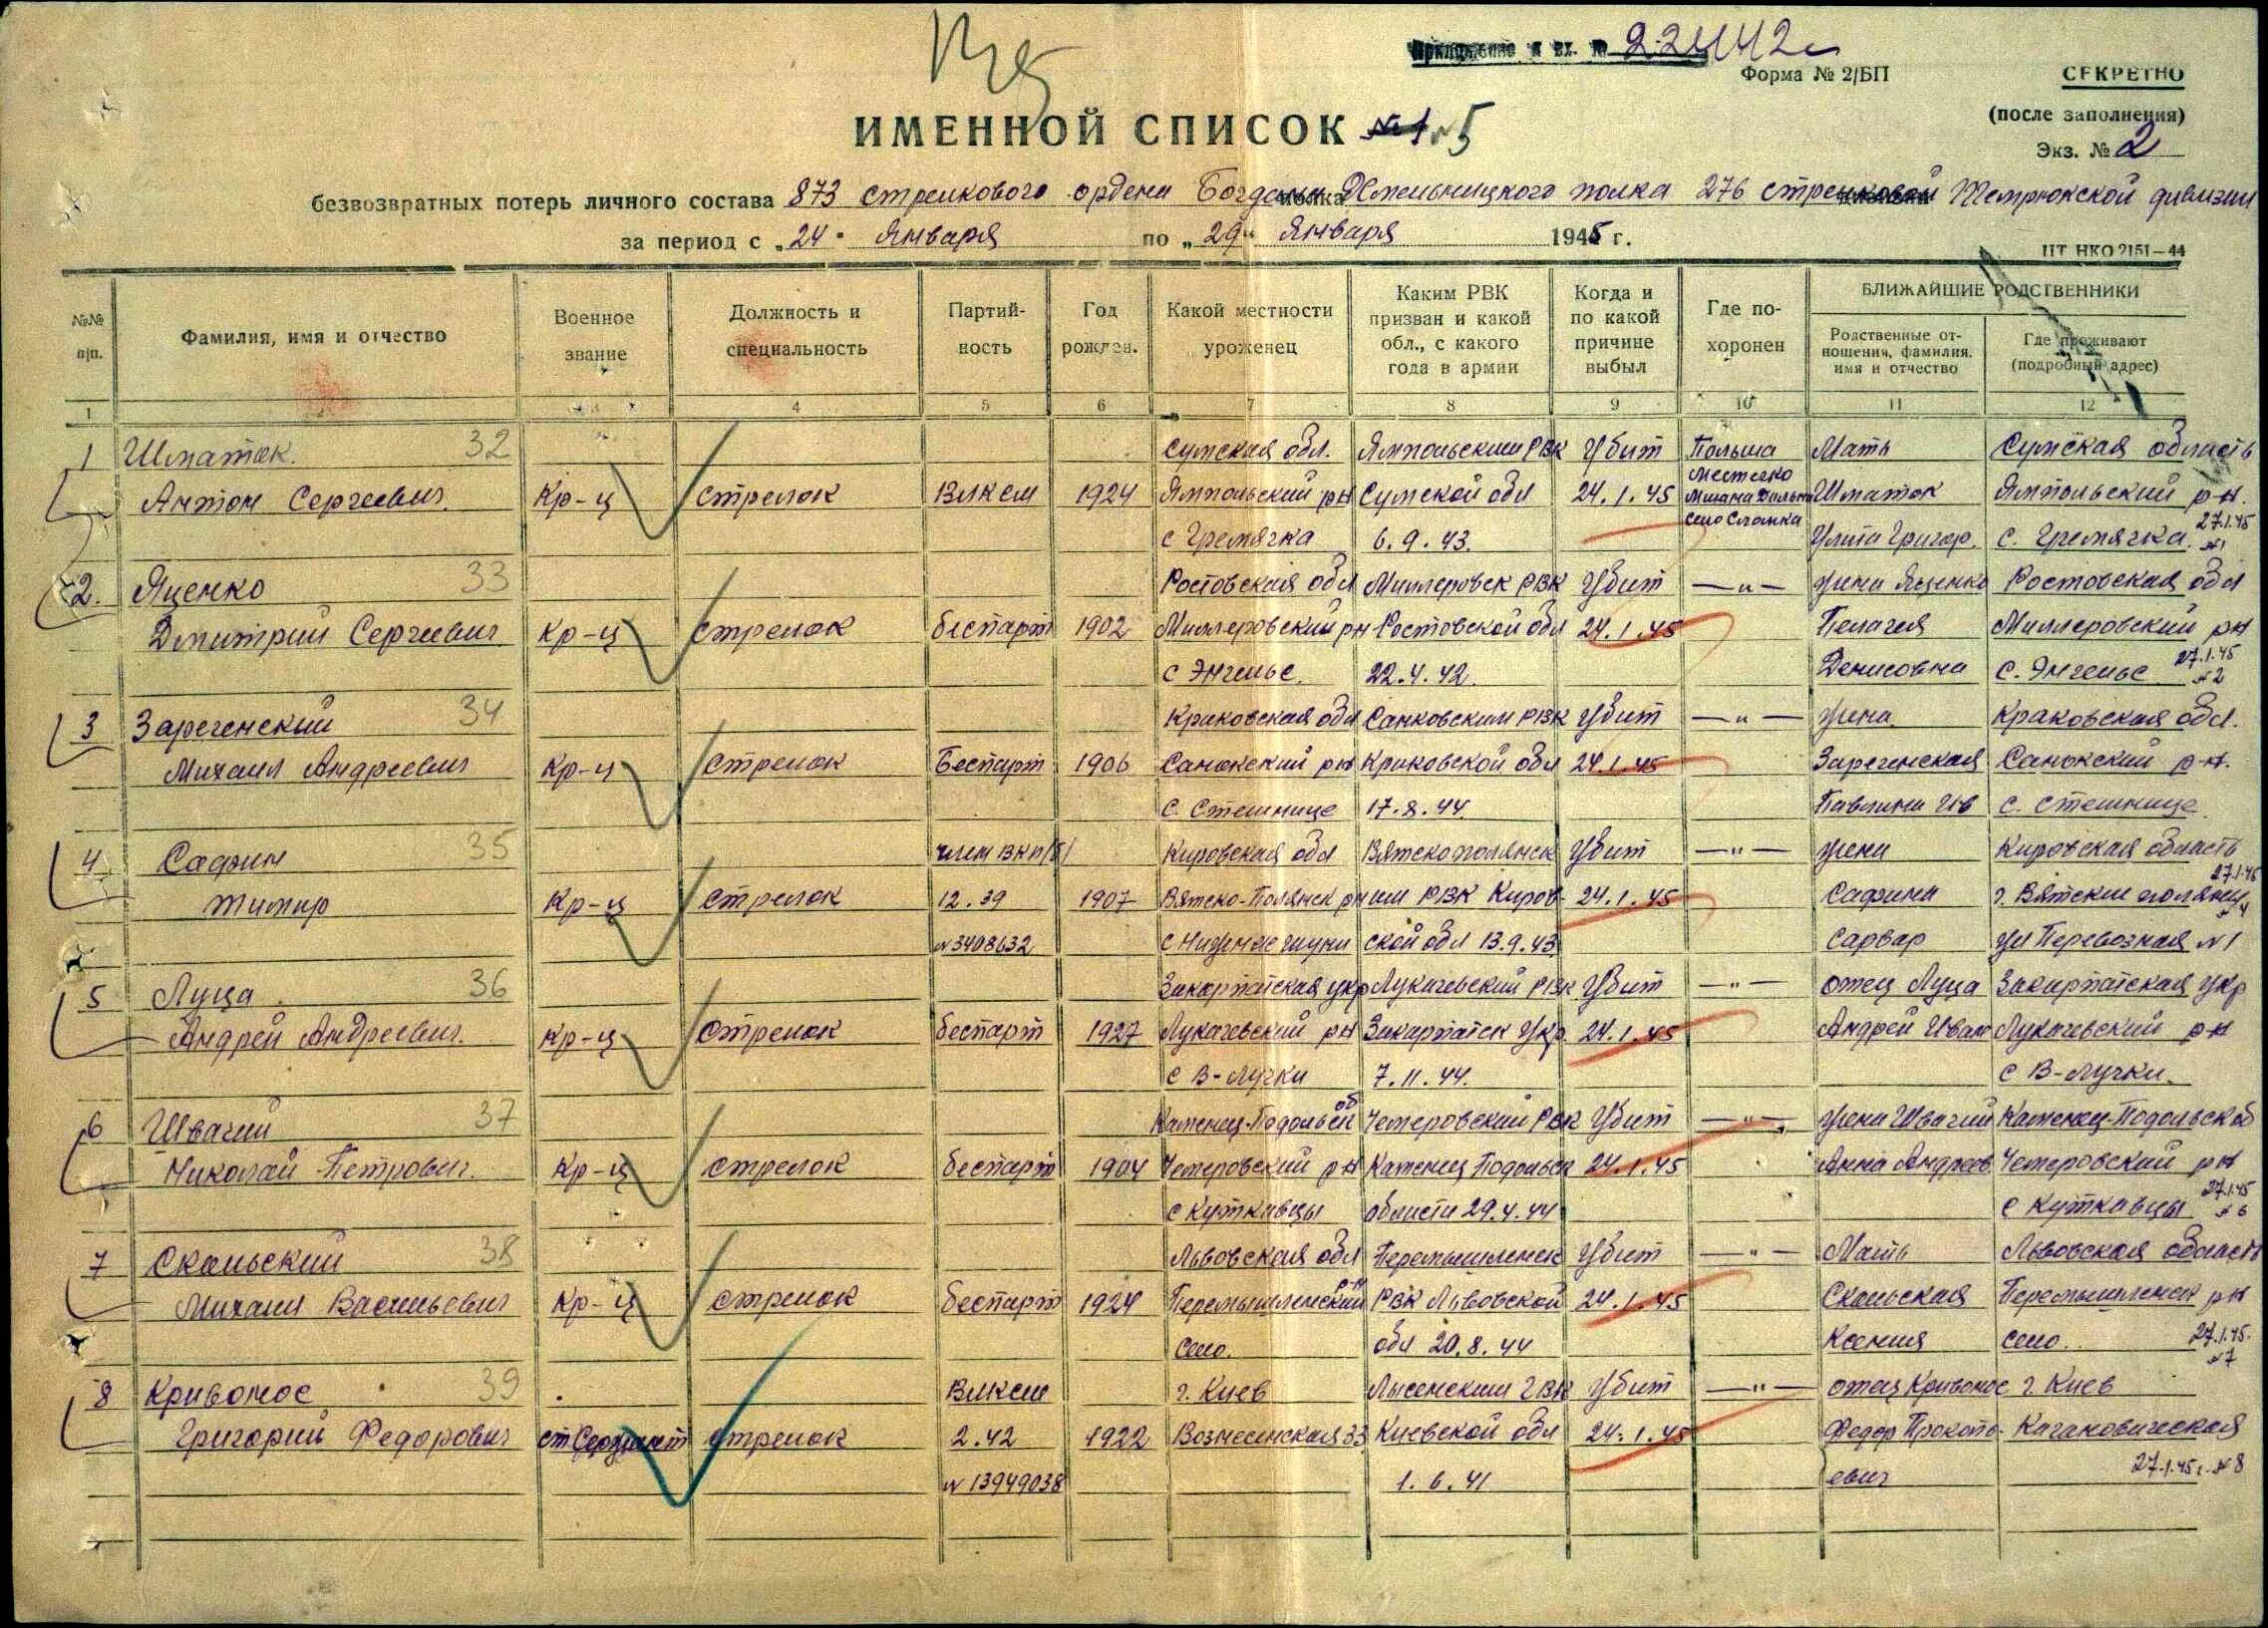 Приложение к вх. № 22442с
Форма № 2/БП
СЕКРЕТНО
(после заполнения)
Экз. № 2
ИМЕННОЙ СПИСОК №1 №5
безвозвратных потерь личного состава 873 стрелкового ордена Богдана Хмельницкого полка 276 стрелковой Темрюкской дивизии
за период с „24" Января по „29" Января 1945 г.
ЦТ НКО 2151—44
№№ п/п.
Фамилия, имя и отчество
Военное звание
Должность и специальность
Партийность
Год рожден.
Какой местности уроженец
Каким РВК призван и какой обл., с какого года в армии
Когда и по какой причине выбыл
Где похоронен
БЛИЖАЙШИЕ РОДСТВЕННИКИ
Родственные отношения, фамилия, имя и отчество
Где проживают (подробный адрес)
1 2 3 4 5 6 7 8 9 10 11 12
1 Шматок 32 Сумская обл. Ямпольским РВК Убит Польша Мать Сумская область
Местечко
Антон Сергеевич Кр-ц Стрелок ВЛКСМ 1924 Ямпольский рн Сумской обл 24.1.45 Шматок Ямпольский р-н.
с Гремячка 6.9.43. Село Улита Григор. с. Гремячка. 27.1.45 №1
2. Яценко 33 Ростовская обл Миллеровск РВК Убит —"— жена Яценко Ростовская обл
Дмитрий Сергеевич Кр-ц Стрелок беспарт 1902 Миллеровский рн Ростовской обл 24.1.45 Пелагея Миллеровский рн
с Энгельс. 22.4.42. Денисовна с. Энгельс 27.1.45 №2
3 Зареченский 34 Краковская обл Санковским РВК Убит —"— жена Краковская обл.
Михаил Андреевич Кр-ц Стрелок Беспарт 1906 Санокский рн Краковской обл 24.1.45 Зареченская Санокский р-н.
с. Стешнице 17.8.44. Павлина Ив с. Стешнице.
4 Сафин 35 член ВКП/б/ Кировская обл Вятскополянск Убит —"— жена Кировская область
Тимир Кр-ц Стрелок 12.39 1907 Вятско-Полянск рн им РВК Киров- 24.1.45 Сафина г. Вятские поляны 27.1.45 №4
№3408632 с Нижние шуни ской обл 13.9.43 Сарвар ул Перевозная №1
5 Луца 36 Закарпатская укр Мукачевский РВК Убит —"— отец Луца Закарпатская Укр
Андрей Андреевич. Кр-ц Стрелок беспарт 1927 Мукачевский рн Закарпатск Укр. 24.1.45 Андрей Иван Мукачевский рн
с В-Лучки 7.11.44. с В-Лучки.
6 Швачий 37 Каменец-Подольск об Чемеровский РВК Убит —"— жена Швачий Каменец-Подольск об
Николай Петрович. Кр-ц Стрелок беспарт 1904 Чемеровский рн Каменец Подольск 24.1.45 Анна Андреев. Чемеровский рн
с Кутковцы области 29.4.44 с Кутковцы 27.1.45 №6
7 Скальский 38 Львовская обл Перемышлянск Убит —"— Мать Львовская область
Михаил Васильевич Кр-ц Стрелок беспарт 1924 Перемышлянский р-н РВК Львовской 24.1.45 Скальская Перемышлянск рн
село. обл 20.8.44 Ксения село. 27.1.45. №7
8 Кривонос 39 ВЛКСМ г. Киев ГВК Убит —"— отец Кривонос г Киев
Григорий Федорович ст Сержант Стрелок 2.42 1922 Вознесенская 33 Киевской обл 24.1.45 Федор Прокопь- Кагановическая
№ 13949038 1.6.41 евич 27.1.45г. №8